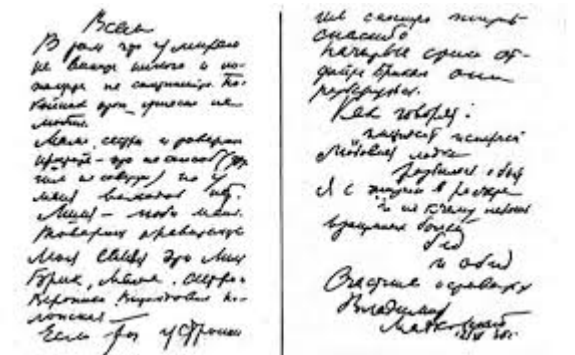 Всем
В том что умираю
не вините никого и по-
жалуйста не сплетничайте. По-
койник этого ужасно не
любил.
Мама, сестры и товарищи
простите - это не способ (дру-
гим не советую) но у
меня выходов нет.
Лиля - люби меня.
Товарищ правительство
моя семья это Лиля
Брик, мама, сестры и
Вероника Витольдовна По-
лонская -
Если ты устроишь
им сносную жизнь -
спасибо
Начатые стихи от-
дайте Брикам они
разберутся.
Как говорят:
инцидент исперчен
Любовная лодка
разбилась о быт
Я с жизнью в расчете
и не к чему перечень
взаимных болей
бед
и обид
Счастливо оставаться
Владимир
Маяковский
12/IV 30 г.